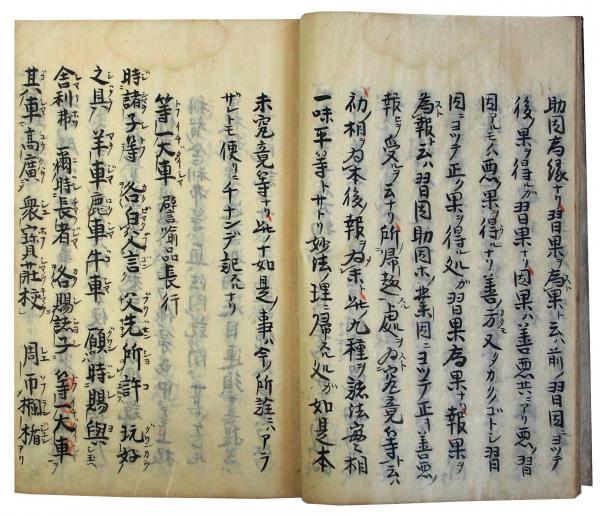 助因為縁ナリ習果為果ト云ハ前ノ習因ニヨツテ
後ノ果ヲ得ルガ習果ナリ因果ハ善悪共ニアリ悪ノ習
因アルモノハ悪果ヲ得ルナリ善ノ方又カクノゴトシ習
因ニヨツテ正ク果ヲ得ル処ガ習果為果ナリ報果ヲ
為報ト云ハ習因助因ホ業因ニヨツテ正キ善悪ノ
報ヲ受ルヲ云ナリ所帰趣ノ処ヲ為究竟等ト云ハ
初相為本後報ヲ為末ト此九種ヲ諸法実相
一味平等トサトリ妙法ノ理ニ帰スル処ガ如是本
末究竟等ナリ此ノ十如是ノ事ハ今ノ所詮ニハアラ
ザレトモ便リニチナンデ記スルナリ
等一大車 譬喩品長行
時諸子等 各白父言 父先所許 玩好
之具 羊車鹿車牛車 願時賜與
舎利弗 爾時長者 各賜諸子 等一大車
其車高廣 衆寶荘校 周帀欄楯